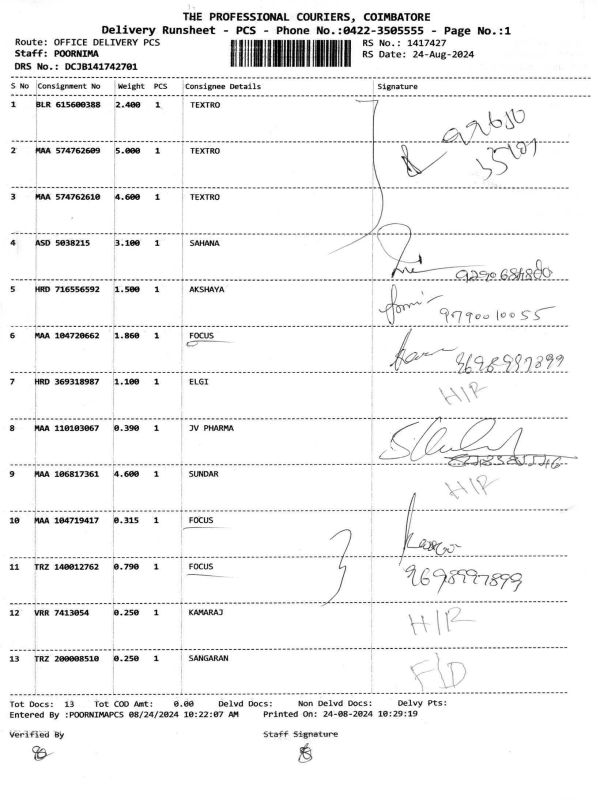 THE PROFESSIONAL COURIERS, COIMBATORE
Delivery Runsheet - PCS - Phone No.:0422-3505555 - Page No.:1
Route: OFFICE DELIVERY PCS RS No.: 1417427
Staff: POORNIMA RS Date: 24-Aug-2024
DRS No.: DCJB141742701
S No Consignment No Weight PCS Consignee Details Signature
1 BLR 615600388 2.400 1 TEXTRO
2 MAA 574762609 5.000 1 TEXTRO
3 MAA 574762610 4.600 1 TEXTRO
4 ASD 5038215 3.100 1 SAHANA
5 HRD 716556592 1.500 1 AKSHAYA
9790010055
6 MAA 104720662 1.860 1 FOCUS
9698997899
7 HRD 369318987 1.100 1 ELGI H/R
8 MAA 110103067 0.390 1 JV PHARMA
9 MAA 106817361 4.600 1 SUNDAR H/R
10 MAA 104719417 0.315 1 FOCUS
11 TRZ 140012762 0.790 1 FOCUS 9698997899
12 VRR 7413054 0.250 1 KAMARAJ H/R
13 TRZ 200008510 0.250 1 SANGARAN F/D
Tot Docs: 13 Tot COD Amt: 0.00 Delvd Docs: Non Delvd Docs: Delvy Pts:
Entered By :POORNIMAPCS 08/24/2024 10:22:07 AM Printed On: 24-08-2024 10:29:19
Verified By Staff Signature